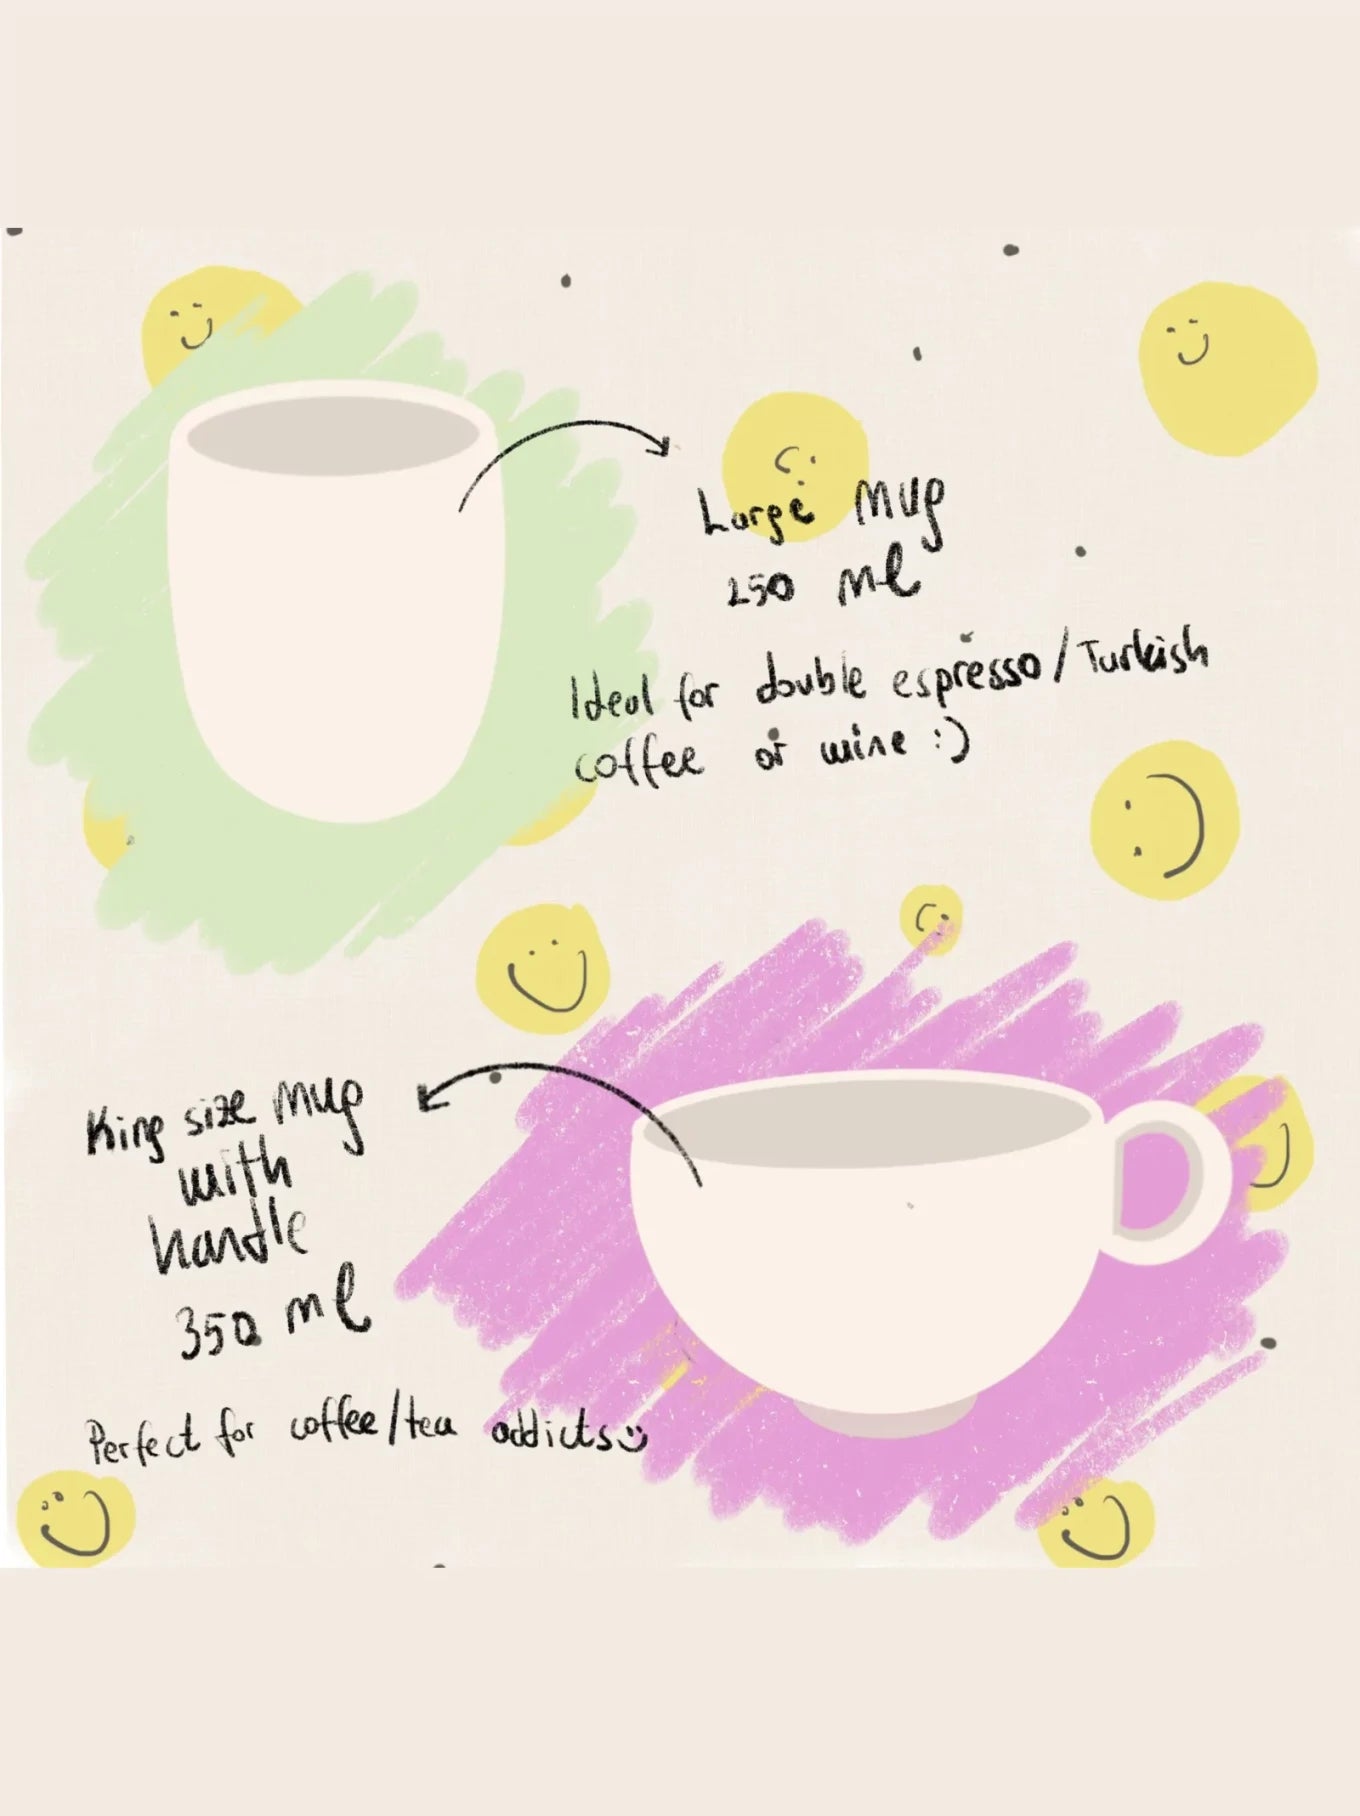 Large mug
250 ml
Ideal for double espresso/Turkish
coffee or wine :)
King size mug
with
handle
350 ml
Perfect for coffee/tea addicts